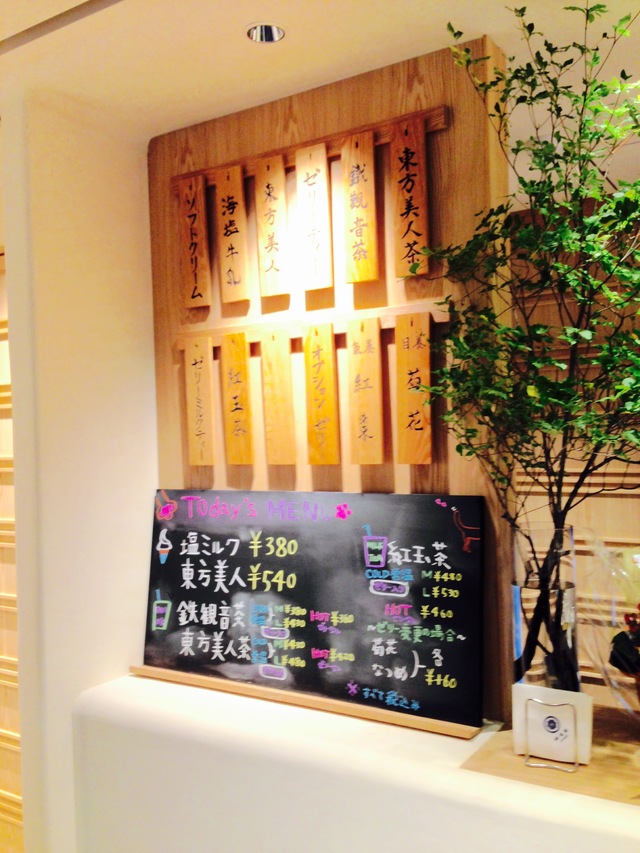 東方美人茶
鐵觀音茶
ゼリーティー
東方美人
海塩牛乳
ソフトクリーム
目養 菊花
氣養 紅棗
オプションゼリー
紅玉茶
ゼリーミルクティー
Today's MENU
塩ミルク ¥380
東方美人 ¥540
鉄観音茶
M ¥380
L ¥430
HOT ¥360
東方美人茶
M ¥430
L ¥480
HOT ¥420
紅玉茶
COLD 常温 M ¥480
L ¥530
HOT ¥460
~ゼリー変更の場合~
菊花
なつめ
各 ¥160
※すべて税込み